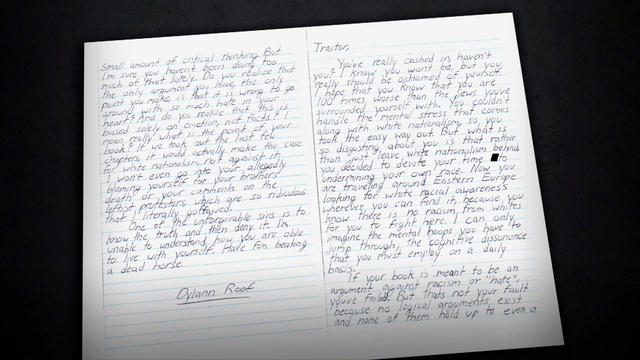 Traitor,
You've really cashed in, haven't
you? I know you wont be, but you
really should be ashamed of yourself.
I hope that you know that you are
100 times worse than the jews you've
surrounded yourself with. You couldn't
handle the mental stress that comes
along with white nationalism, so you
took the easy way out. But what is
so disgusting about you is that rather
than just leave white nationalism behind
you decided to devote your time to
undermining your own race. Now you
are traveling around Eastern Europe
looking for white racial awareness
wherever you can find it, because you
know there is no racism from whites
for you to fight here. I can only
imagine the mental hoops you have to
jump through, the cognitive dissonance
that you must employ on a daily
basis.
If your book is meant to be an
argument against racism or "hate",
you've failed. But thats not your fault
because no logical arguments exist
and none of them hold up to even a
Small amount of critical thinking. But
I'm sure you havent been doing too
much of that lately. Do you realize that
the only argument you have, the only
point you make is that it is wrong to go
around with so much hate in your
heart? And do you realize that this is
based solely on emotion, not facts? I
mean really what is the point of your
book? If we took out the last few
chapters, it would actually make the case
for white nationalism, not against it.
I wont even go into your allegedly
blaming yourself for your brothers'
death, or your comments on the
leftist protestors, which are so ridiculous
that I literally guffawed.
One of the unforgivable sins is to
know the truth and then deny it. I'm
unable to understand how you are able
to live with yourself. Have fun beating
a dead horse.
Dylann Roof